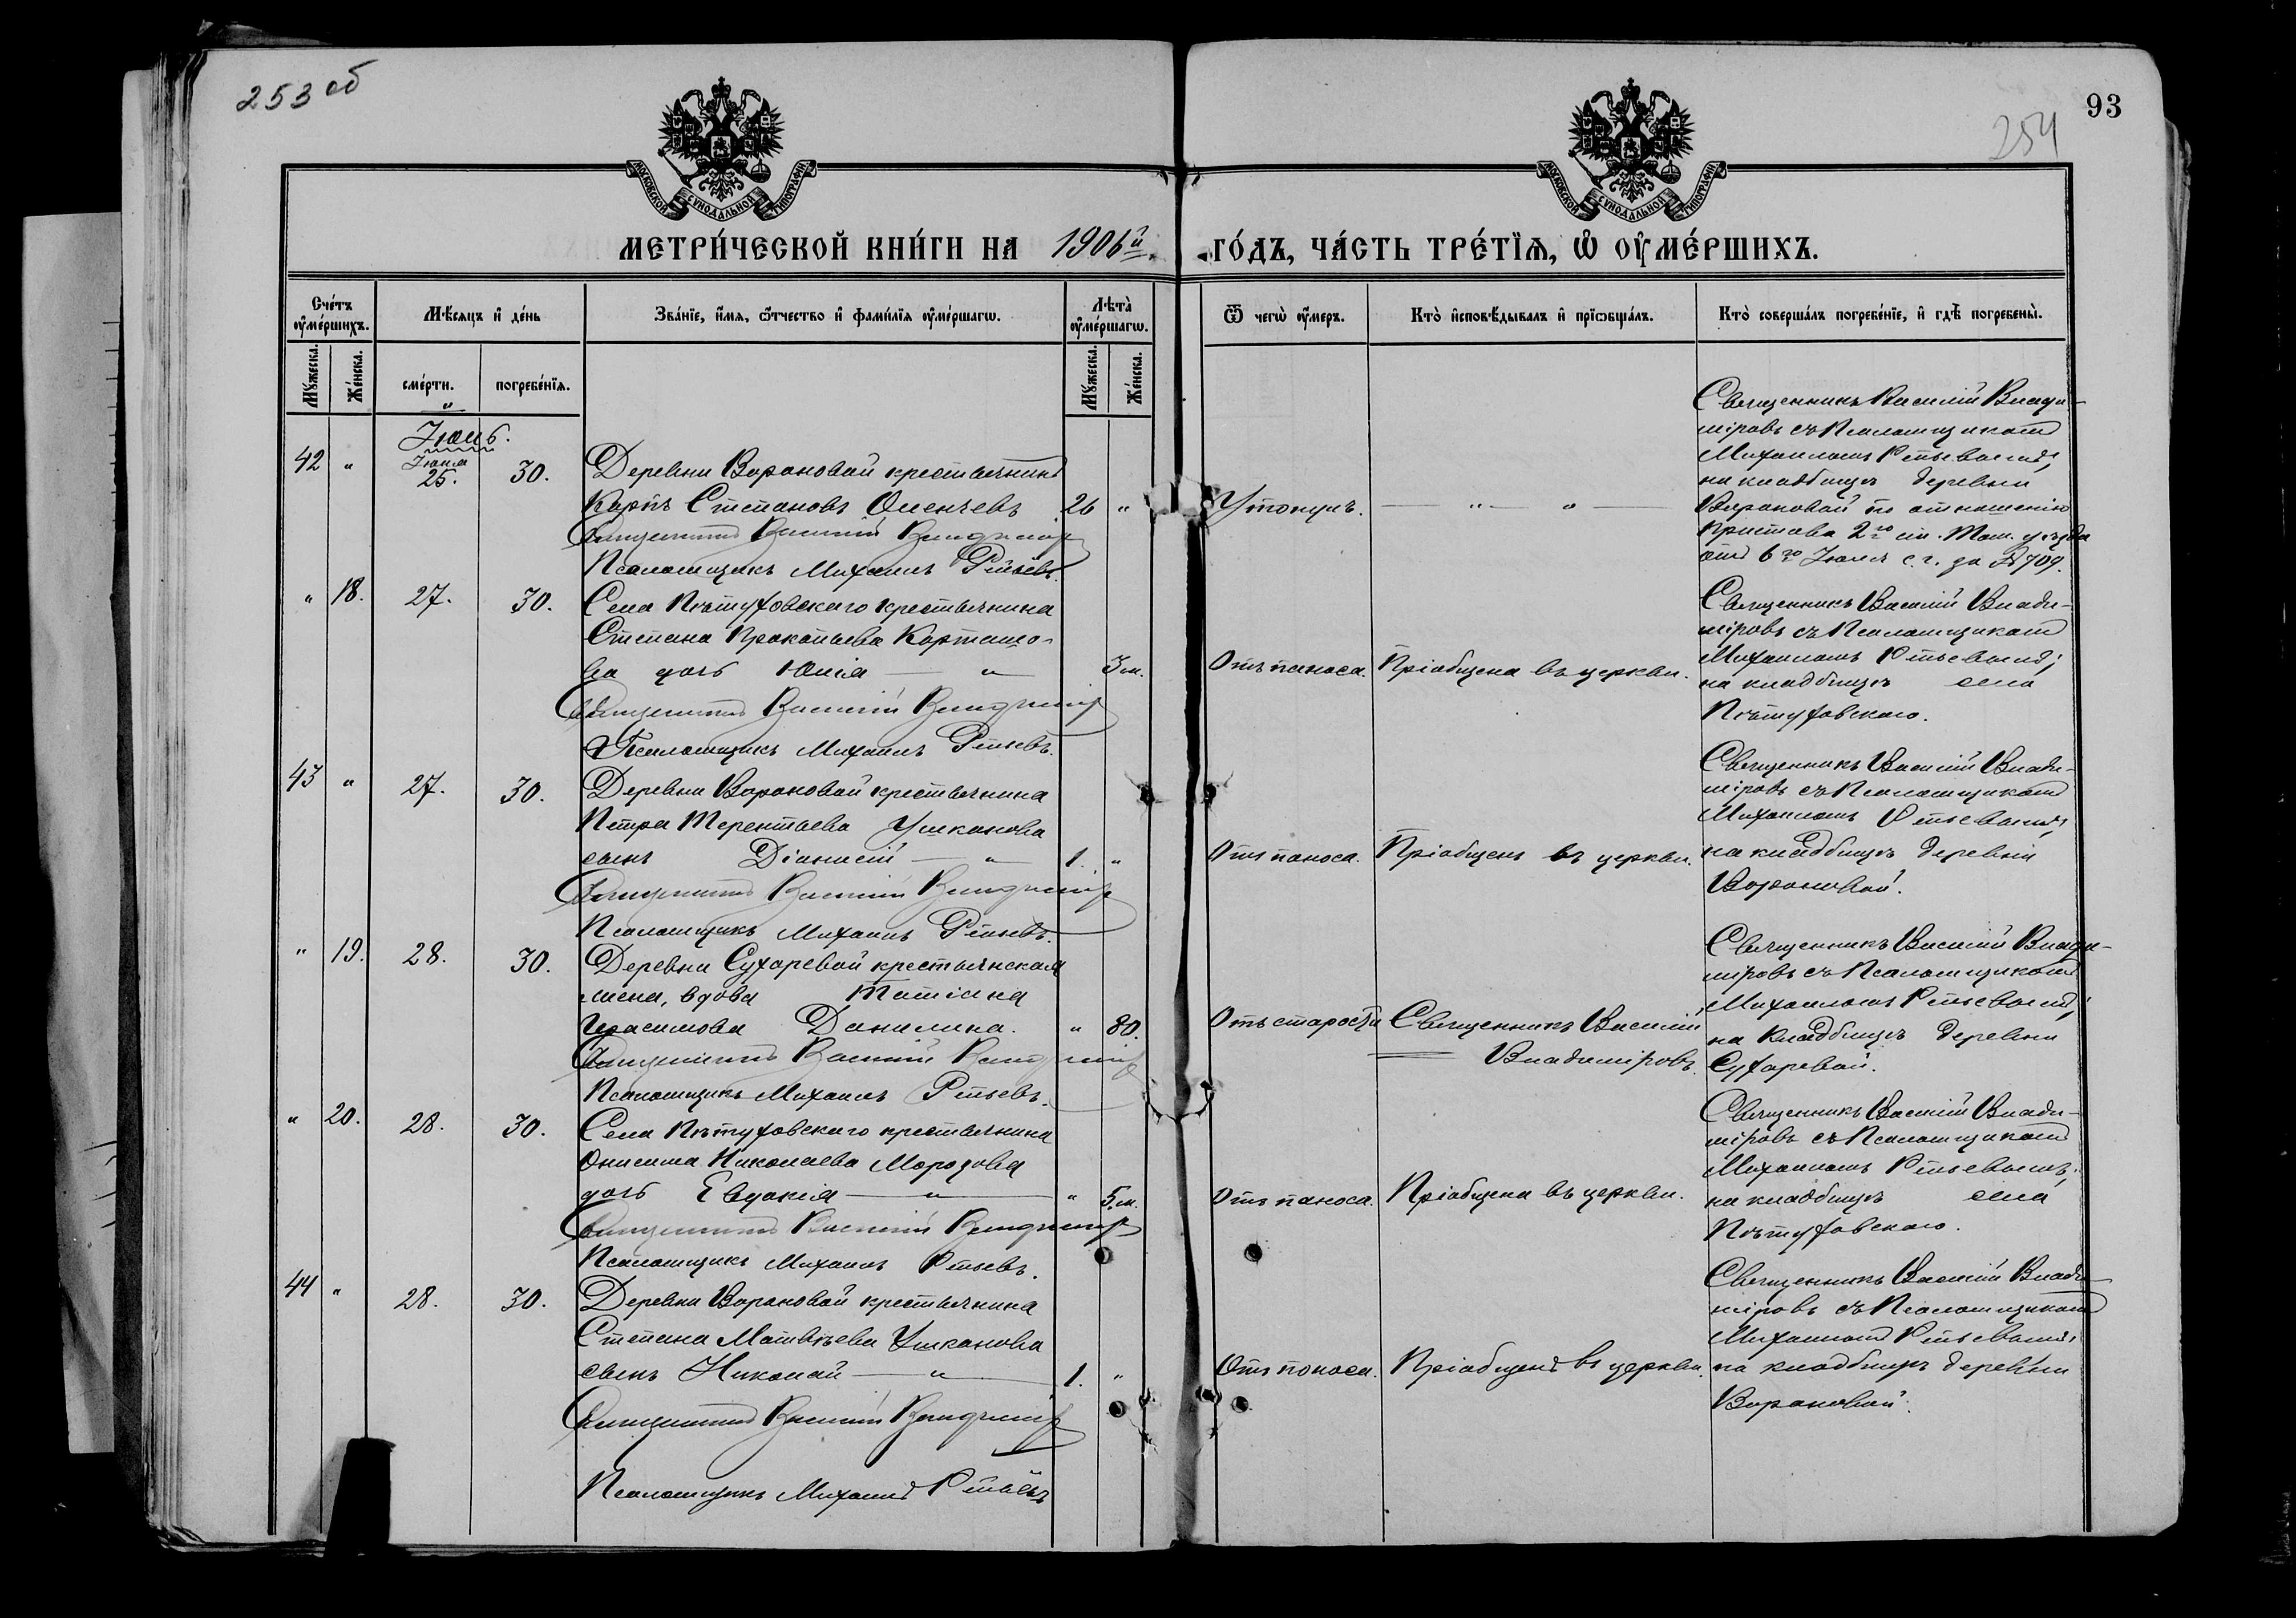 253 об
254
93
МОСКОВСКОЙ СѴНОДАЛЬНОЙ ТИПОГРАФІИ
МОСКОВСКОЙ СѴНОДАЛЬНОЙ ТИПОГРАФІИ
МЕТРИ́ЧЕСКОЙ КНИ́ГИ НА 1906й. ГО́ДЪ, ЧА́СТЬ ТРЕ́ТІЯ, Ѡ ОУМЕ́РШИХЪ.
Сче́тъ оуме́ршихъ.
Мѣ́сяцъ и де́нь
Зва́ніе, и́мя, ѻ́тчество и фами́лія оуме́ршагѡ.
Лѣта̀ оуме́ршагѡ.
Ѿ чегѡ̀ оу́меръ.
Кто̀ исповѣ́дывалъ и пріѡбща́лъ.
Кто̀ соверша́лъ погребе́ніе, и гдѣ̀ погребены̀.
Мꙋ́жеска.
Же́нска.
сме́рти.
погребе́нія.
Мꙋ́жеска.
Же́нска.
Іюль.
42 " Іюня 25. 30.
Деревни Вороновой крестьянинъ
Карпъ Степановъ 26 "
Священникъ Василій Владиміровъ
Псаломщикъ Михаилъ
Утонулъ. — " — " —
Священникъ Василій Влади-
міровъ съ Псаломщикомъ
Михаиломъ
на кладбищѣ деревни
Вороновой по отношенію
Пристава 2го ст. Том. уѣзда
отъ 6го Іюля с. г. за № 709.
" 18. 27. 30.
Села Пѣтуховскаго крестьянина
Степана Прокопьева Карташо-
ва дочь Юлія — " 3 м.
Священникъ Василій Владиміровъ
Псаломщикъ Михаилъ
Отъ поноса. Пріобщена въ церкви.
Священникъ Василій Влади-
міровъ съ Псаломщикомъ
Михаиломъ
на кладбищѣ села
Пѣтуховскаго.
43 " 27. 30.
Деревни Вороновой крестьянина
Петра Терентьева Ушканова
сынъ Діонисій — " 1. "
Священникъ Василій Владиміровъ
Псаломщикъ Михаилъ
Отъ поноса. Пріобщенъ въ церкви.
Священникъ Василій Влади-
міровъ съ Псаломщикомъ
Михаиломъ
на кладбищѣ деревни
Вороновой.
" 19. 28. 30.
Деревни Сухаревой крестьянская
жена, вдова Татіана
Герасимова Данилина. " 80.
Священникъ Василій Владиміровъ
Псаломщикъ Михаилъ
Отъ старости Священникъ Василій
Владиміровъ.
Священникъ Василій Влади-
міровъ съ Псаломщикомъ
Михаиломъ
на кладбищѣ деревни
Сухаревой.
" 20. 28. 30.
Села Пѣтуховскаго крестьянина
Онисима Николаева Морозова
дочь Евдокія — " " 5. м.
Священникъ Василій Владиміровъ
Псаломщикъ Михаилъ
Отъ поноса. Пріобщена въ церкви.
Священникъ Василій Влади-
міровъ съ Псаломщикомъ
Михаиломъ
на кладбищѣ села
Пѣтуховскаго.
44 " 28. 30.
Деревни Вороновой крестьянина
Степана Матвѣева Ушканова
сынъ Николай — " 1. "
Священникъ Василій Владиміровъ
Псаломщикъ Михаилъ
Отъ поноса. Пріобщенъ въ церкви.
Священникъ Василій Влади-
міровъ съ Псаломщикомъ
Михаиломъ
на кладбищѣ деревни
Вороновой.